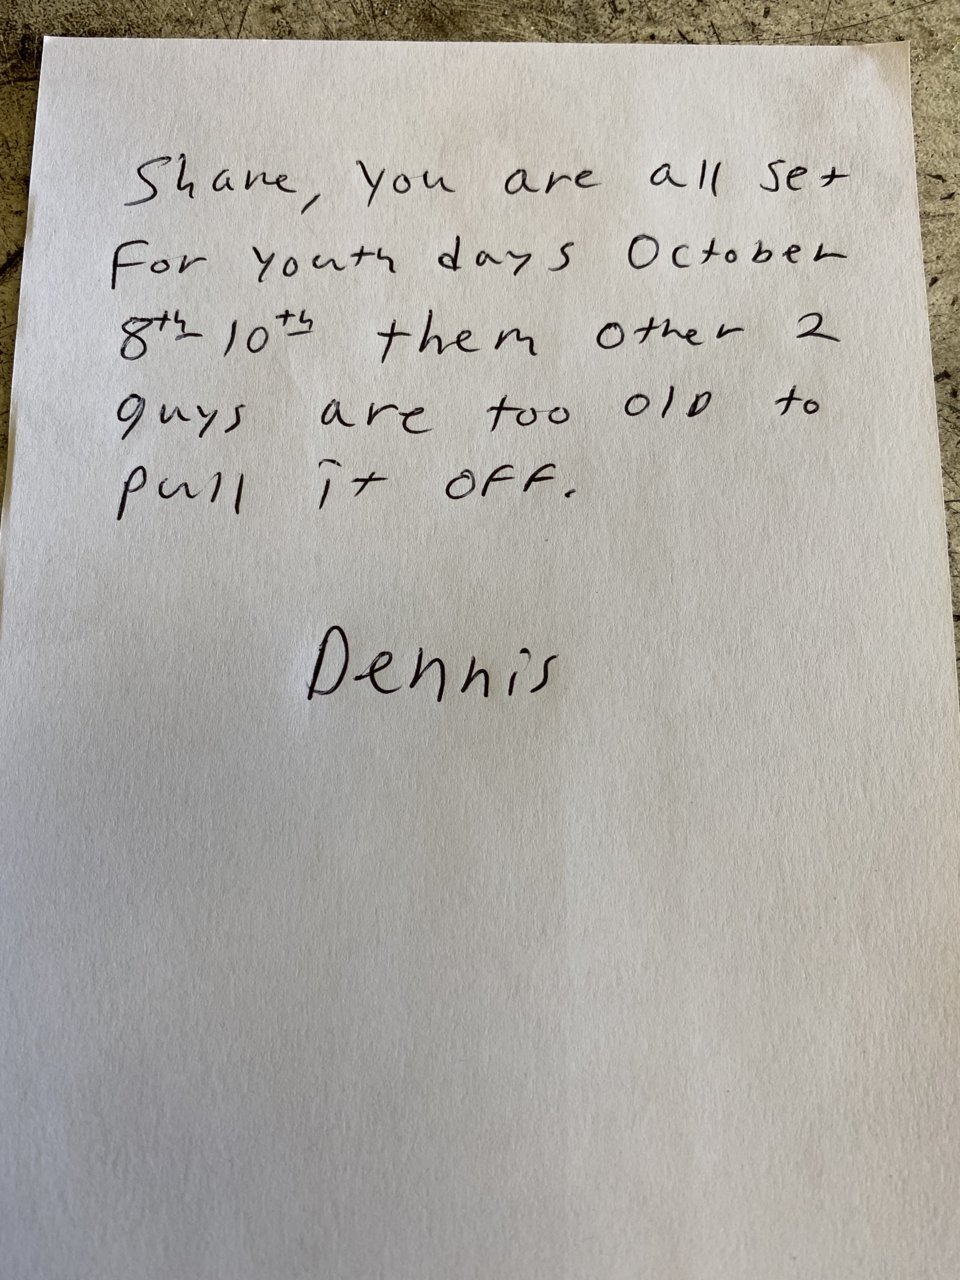 Shane, you are all set
For youth days October
8th-10th them other 2
guys are too old to
pull it off.
Dennis